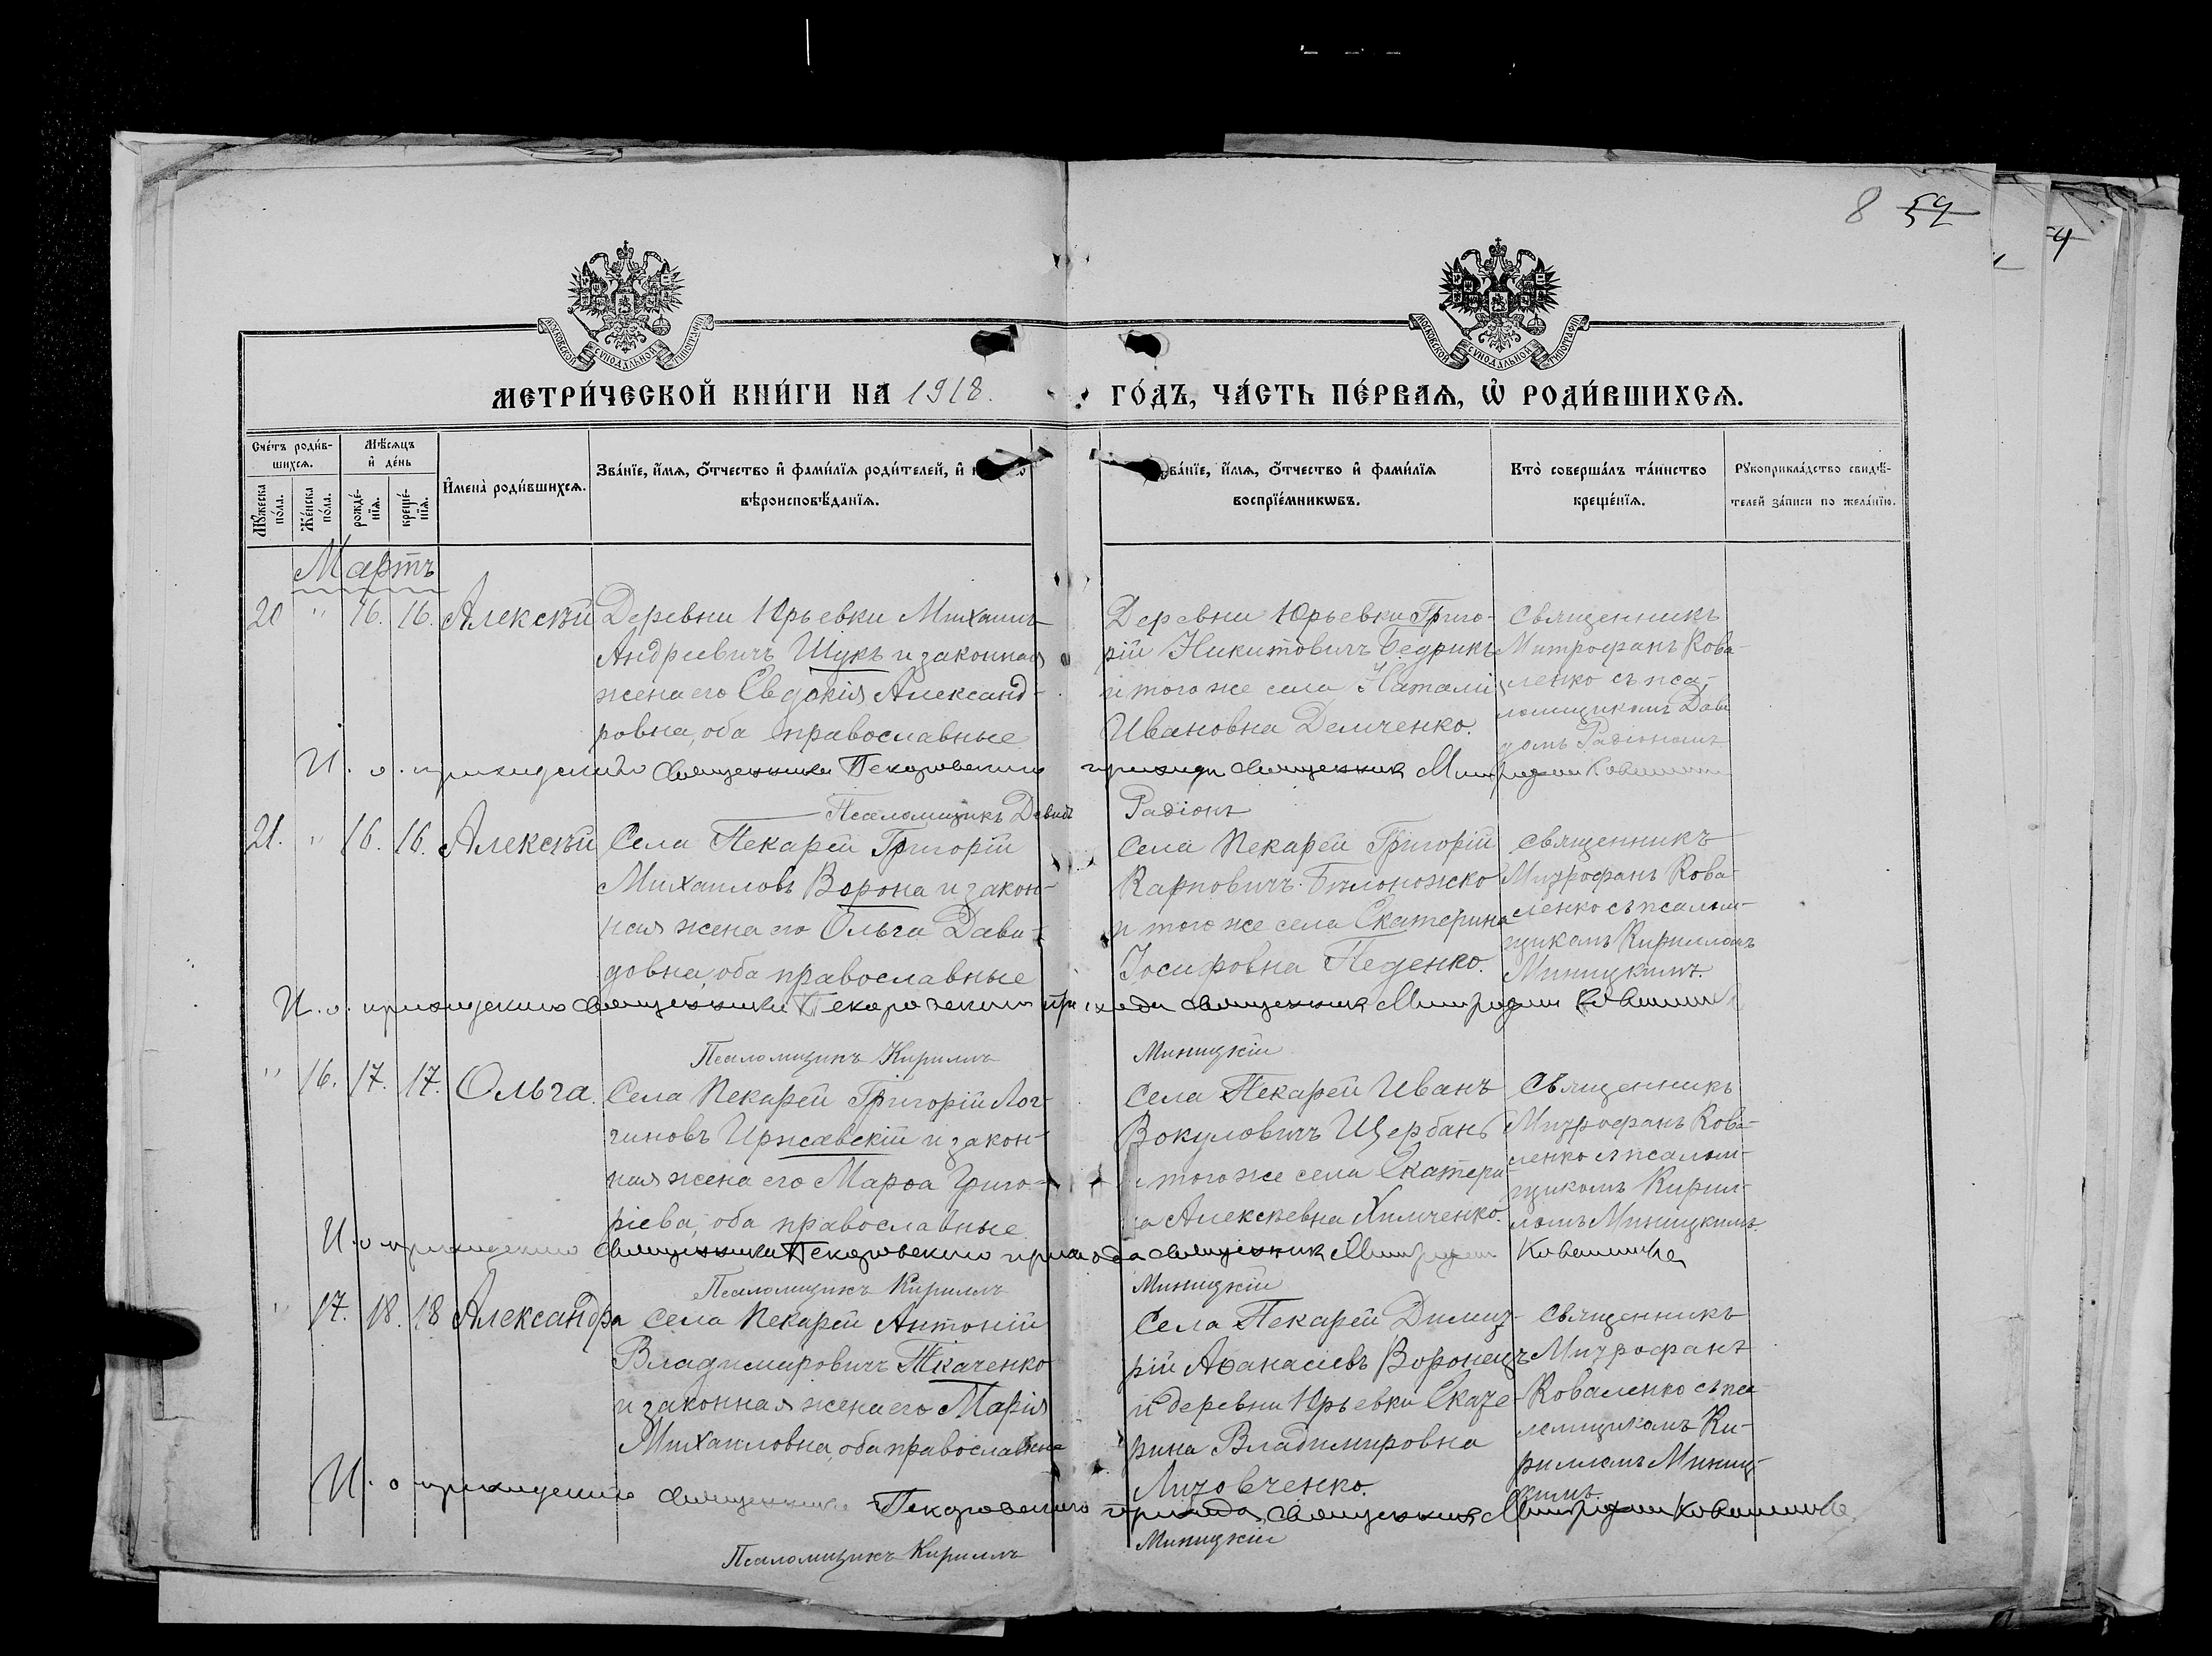 8 59
МОСКОВСКОЙ СѴНОДАЛЬНОЙ ТИПОГРАФІИ
МОСКОВСКОЙ СѴНОДАЛЬНОЙ ТИПОГРАФІИ
МЕТРИ́ЧЕСКОЙ КНИ́ГИ НА 1918. ГО́ДЪ, ЧА́СТЬ ПЕ́РВАѦ, Ѡ҆ РОДИ́ВШИХСѦ.
Сче́тъ роди́вшихсѧ.
Мꙋ́жеска по́ла.
Же́нска по́ла.
Мѣ́сѧцъ и҆ де́нь
рожде́нїѧ.
креще́нїѧ.
И҆мена̀ роди́вшихсѧ.
Зва́нїе, и҆́мѧ, ѻ҆́тчество и҆ фами́лїѧ роди́телей, и҆
вѣроисповѣ́данїѧ.
ва́нїе, и҆́мѧ, ѻ҆́тчество и҆ фами́лїѧ
воспрїе́мникѡвъ.
Кто̀ соверша́лъ та́инство
креще́нїѧ.
Рꙋкоприкла́дство свидѣ́-
телей за́писи по жела́нїю.
Мартъ
20 " 16. 16. Алексѣй
Деревни Юрьевки Михаилъ
Андреевичъ Щукъ и законная
жена его Евдокія Александ-
ровна, оба православные
Деревни Юрьевки Григо-
рій Никитовичъ Бедрикъ
и того же села Наталія
Ивановна Демченко.
Священникъ
Митрофанъ Кова-
ленко съ псa-
ломщикомъ Дави
домъ Радіономъ
И. о. приходскаго священника Пекаревскаго прихода священникъ Митрофанъ Коваленко
Псаломщикъ Давидъ Радіонъ
21. " 16. 16. Алексѣй
Села Пекарей Григорій
Михаиловъ Ворона и закон-
ная жена его Ольга Дави-
довна, оба православные
Села Пекарей Григорій
Карповичъ Бѣлоножко
и того же села Екатерина
Іосифовна Педенко.
Священникъ
Митрофанъ Кова-
ленко съ псалом-
щикомъ Кирилломъ
Миницкимъ.
И. о. приходскаго священника Пекаревскаго прихода священникъ Митрофанъ Коваленко
Псаломщикъ Кириллъ Миницкій
" 16. 17. 17. Ольга.
Села Пекарей Григорій Лог-
гиновъ Иржавскій и закон-
ная жена его Марѳа Григо-
ріева, оба православные
Села Пекарей Иванъ
Вокуловичъ Щербань
того же села Екатери-
на Алексѣевна Химченко.
Священникъ
Митрофанъ Кова-
ленко съ псалом-
щикомъ Кирил-
ломъ Миницкимъ.
И. о приходскаго священника Пекаревскаго прихода священникъ Митрофанъ Коваленко
Псаломщикъ Кириллъ Миницкій
" 17. 18. 18 Александра
Села Пекарей Антоній
Владимировичъ Ткаченко
и законная жена его Марія
Михаиловна, оба православные
Села Пекарей Димит-
рій Аѳанасіевъ Воронецъ
и деревни Юрьевки Екате-
рина Владимировна
Литовченко.
Священникъ
Митрофанъ
Коваленко съ пса-
ломщикомъ Ки-
рилломъ Миниц-
кимъ.
И. о приходскаго священника Пекаревскаго прихода священникъ Митрофанъ Коваленко.
Псаломщикъ Кириллъ Миницкій